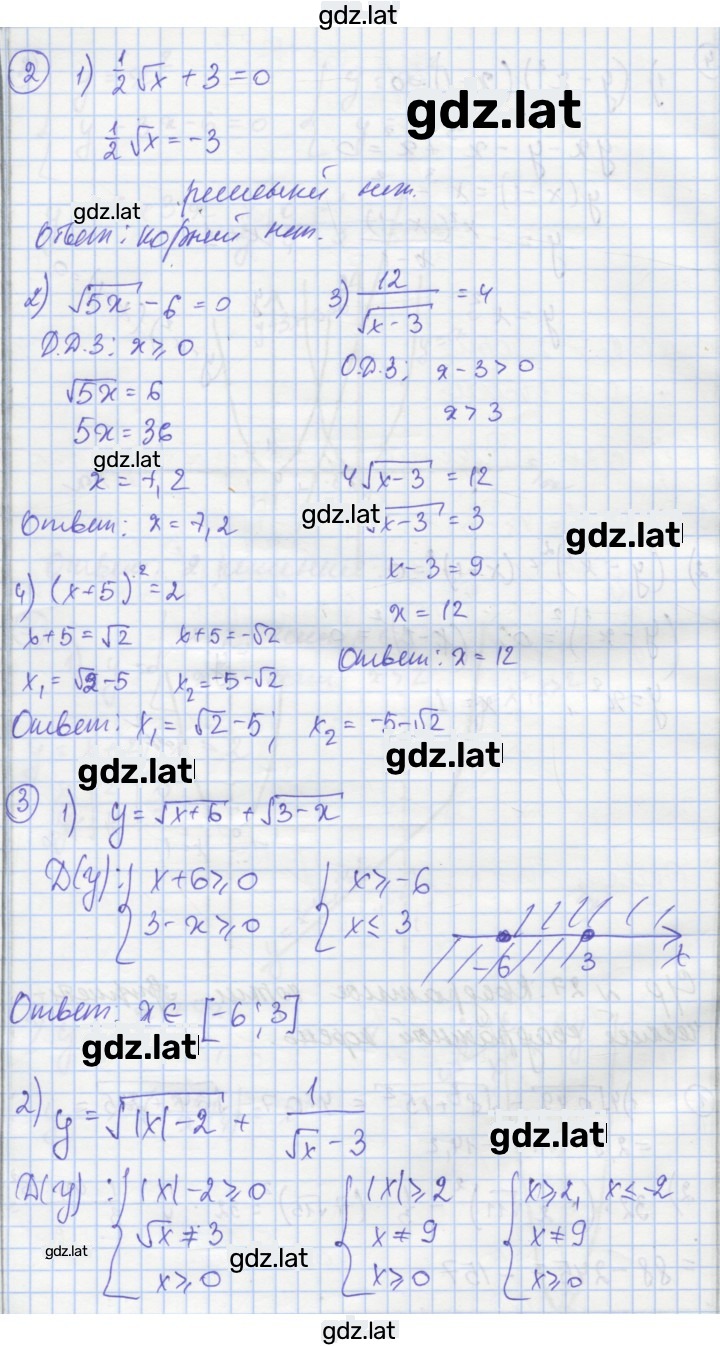 gdz.lat
2 1) 1/2 √x + 3 = 0
gdz.lat
1/2 √x = -3
решений нет.
gdz.lat
Ответ: корней нет.
2) √5x - 6 = 0
О.Д.З: x ⩾ 0
√5x = 6
5x = 36
gdz.lat
x = 7,2
Ответ: x = 7,2
3) 12/√x-3 = 4
О.Д.З; x - 3 > 0
x > 3
4√x-3 = 12
gdz.lat
√x-3 = 3
gdz.lat
x - 3 = 9
x = 12
Ответ: x = 12
4) (x+5)² = 2
x+5 = √2 x+5 = -√2
x₁ = √2-5 x₂ = -5-√2
Ответ: x₁ = √2-5; x₂ = -5-√2
gdz.lat
gdz.lat
3 1) y = √x+6 + √3-x
D(y): { x+6 ⩾ 0 { x ⩾ -6
3-x ⩾ 0 x ≤ 3
-6 3 x
Ответ. x ∈ [-6; 3]
gdz.lat
2) y = √|x|-2 + 1/√x - 3
gdz.lat
D(y): { |x|-2 ⩾ 0 { |x| ⩾ 2 { x ⩾ 2, x ≤ -2
√x ≠ 3 x ≠ 9 x ≠ 9
gdz.lat
gdz.lat
x ⩾ 0 x ⩾ 0 x ⩾ 0
gdz.lat